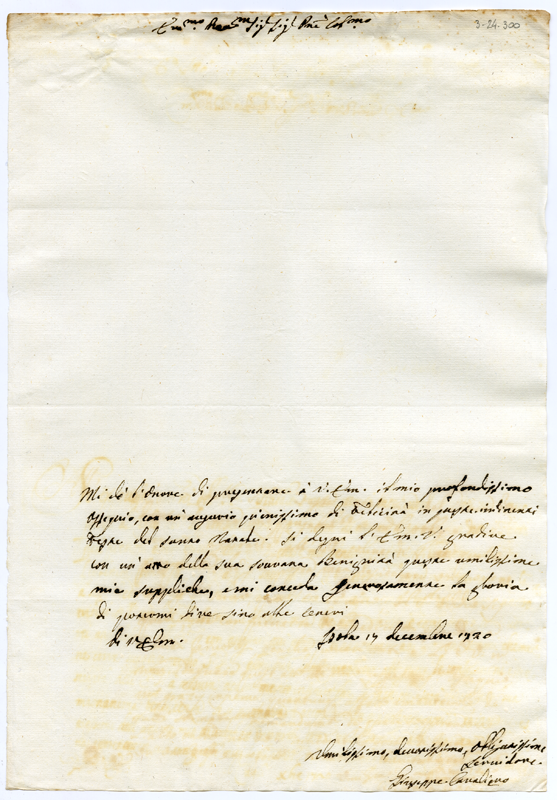 Em.mo Rev.mo Sig.r Sig.r Pne Col.mo
3-24-300
Mi dò l'onore di presentare à V. Em. il mio profondissimo
ossequio, con un augurio pienissimo di felicità in queste imminenti
Feste del santo Natale. Si degni l'Em. V. gradire
con un atto della sua sovrana Benignità queste umilissime
mie suppliche, e mi conceda generosamente la gloria
di potermi dire sino alle ceneri
di V. Em.
17 decembre 1720
Umilissimo, devotissimo, obligatissimo
servidore
Giuseppe